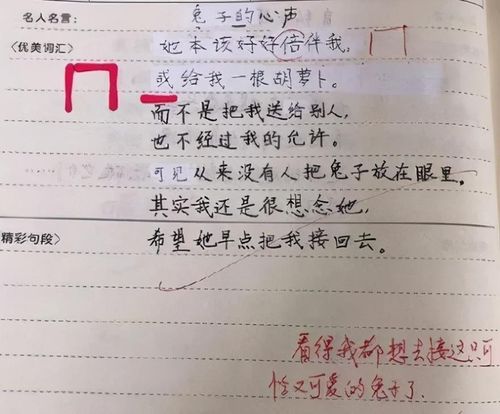 名人名言：
兔子的心声
〈优美词汇〉
她本该好好倍伴我，
或给我一根胡萝卜。
而不是把我送给别人，
也不经过我的允许。
可见从来没有人把兔子放在眼里。
其实我还是很想念她，
精彩句段〉
希望她早点把我接回去。
看得我都想去接这只可
怜又可爱的兔子了．